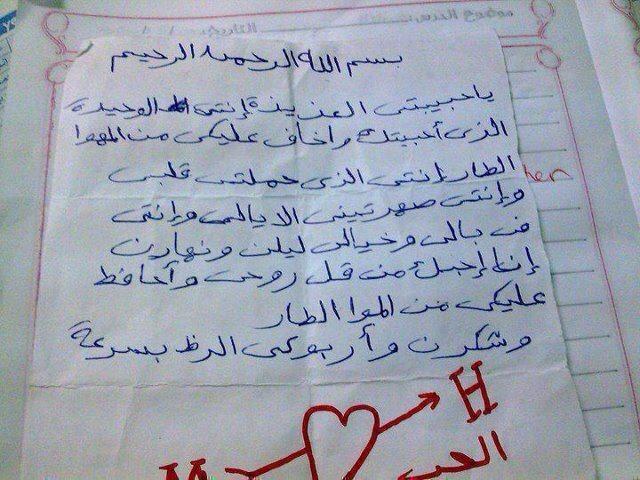 موضوع الدرس
التاريخ
بسم الله الرحمن الرحيم
ياحبيبتى العزيزة إنتى الوحيدة
الذى أحبيتك واخاف عليكى من الهوا
الطار إنتى الذى حملتى قلبى
وإنتى صهرتينى الايالى وإنتى
فى بالى وخيالى ليلن ونهارن
إنا إحبك من كل روحى وأحافظ
عليكى من الهوا الطار
وشكرن وأرجوكى الرظ بسرعة
H
الحب
M